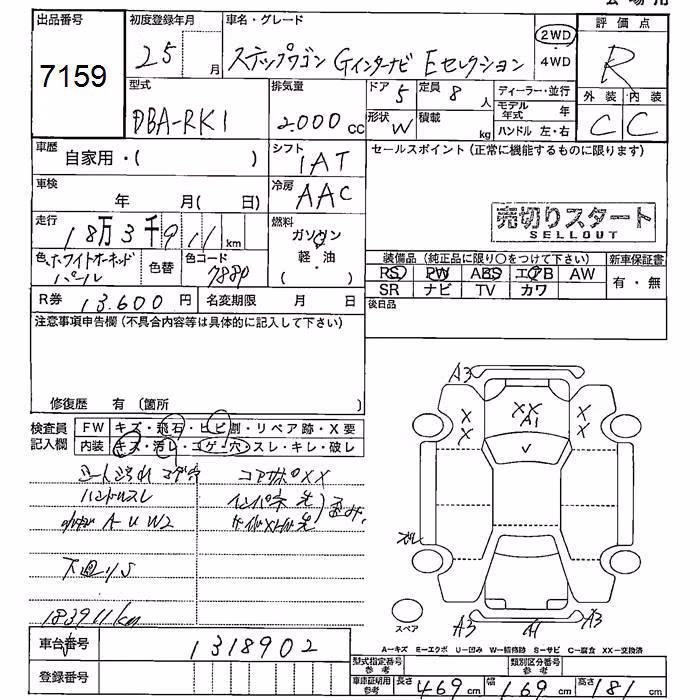 会場用
出品番号
7159
初度登録年月
25 月
車名・グレード
ステップワゴン Gインターナビ Eセレクション
2WD
・
4WD
評価点
R
外装 内装
C C
型式
DBA-RK1
排気量
2.000 cc
ドア 5
定員 8 人
形状 W
積載 kg
ディーラー・並行
モデル年式 年
ハンドル 左・右
車歴
自家用・( )
シフト
IAT
セールスポイント(正常に機能するものに限ります)
車検
年 月( 日)
冷房
AAC
売切りスタート
SELLOUT
走行
18万3千911 km
燃料
ガソリン
・
軽・油
( )
色
ホワイトオーキッド
パール
色替
色コード
7880
装備品(純正品に限り○をつけて下さい)
新車保証書
PS PW ABS エアB AW
SR ナビ TV カワ
有・無
R券 13.600 円
名変期限 月 日
後日品
注意事項申告欄(不具合内容等は具体的に記入して下さい)
修復歴 有(箇所
検査員
記入欄
FW キズ・飛石・ヒビ割・リペア跡・X要
内装 キズ・汚レ・コゲ・穴・スレ・キレ・破レ
シートよごれ コゲ穴
ハンドルスレ
A U W2
下回りS
183911km
コアサポXX
インパネ
A3
X X
X X
XX
A1
A3
A1
A3
スペア
A―キズ E―エクボ U―凹み W―補修跡 S―サビ C―腐食 XX―交換済
車台番号
1318902
登録番号
型式指定番号
参考
類別区分番号
参考
車庫証明用
参考
長さ 469 cm 幅 169 cm 高さ 181 cm